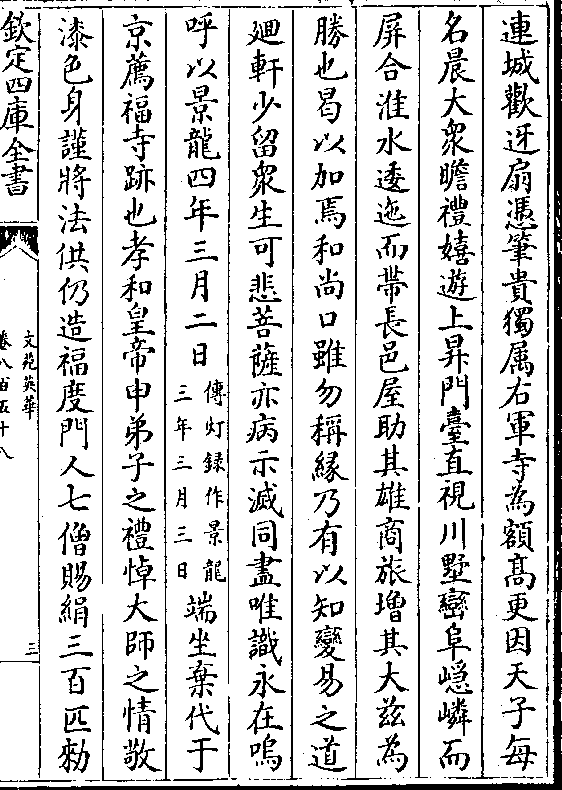 連城歡迓扇憑筆貴獨属右軍寺為額髙更因天子毎
名晨大衆瞻禮嬉遊上昇門臺直視川墅巒阜嶾嶙而
屏合淮水逶迤而帶長邑屋助其雄商旅增其大兹為
勝也曷以加焉和尚口雖勿稱緣乃有以知變易之道
廻軒少留衆生可悲菩薩亦病示滅同盡唯識永在嗚
呼以景龍四年三月二日傳灯録作景龍三年三月三日端坐棄代于
京薦福寺跡也孝和皇帝申弟子之禮悼大師之情敬
漆色身謹將法供仍造福度門人七僧賜絹三百匹勑
欽定四庫全書
文苑英華
卷八百五十八
三